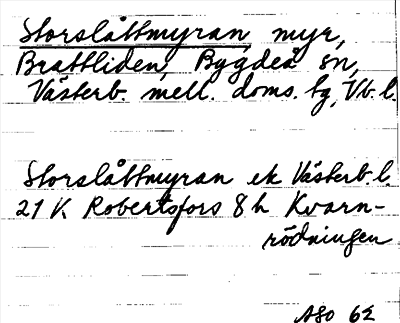 Storslåttmyran, myr,
Brattliden, Bygdeå sn,
Västerb. mell. doms. tg, Vb. l.
Storslåttmyran ek Västerb. l.
21 K Robertsfors 8 h Kvarn-
rödningen
ASO 62